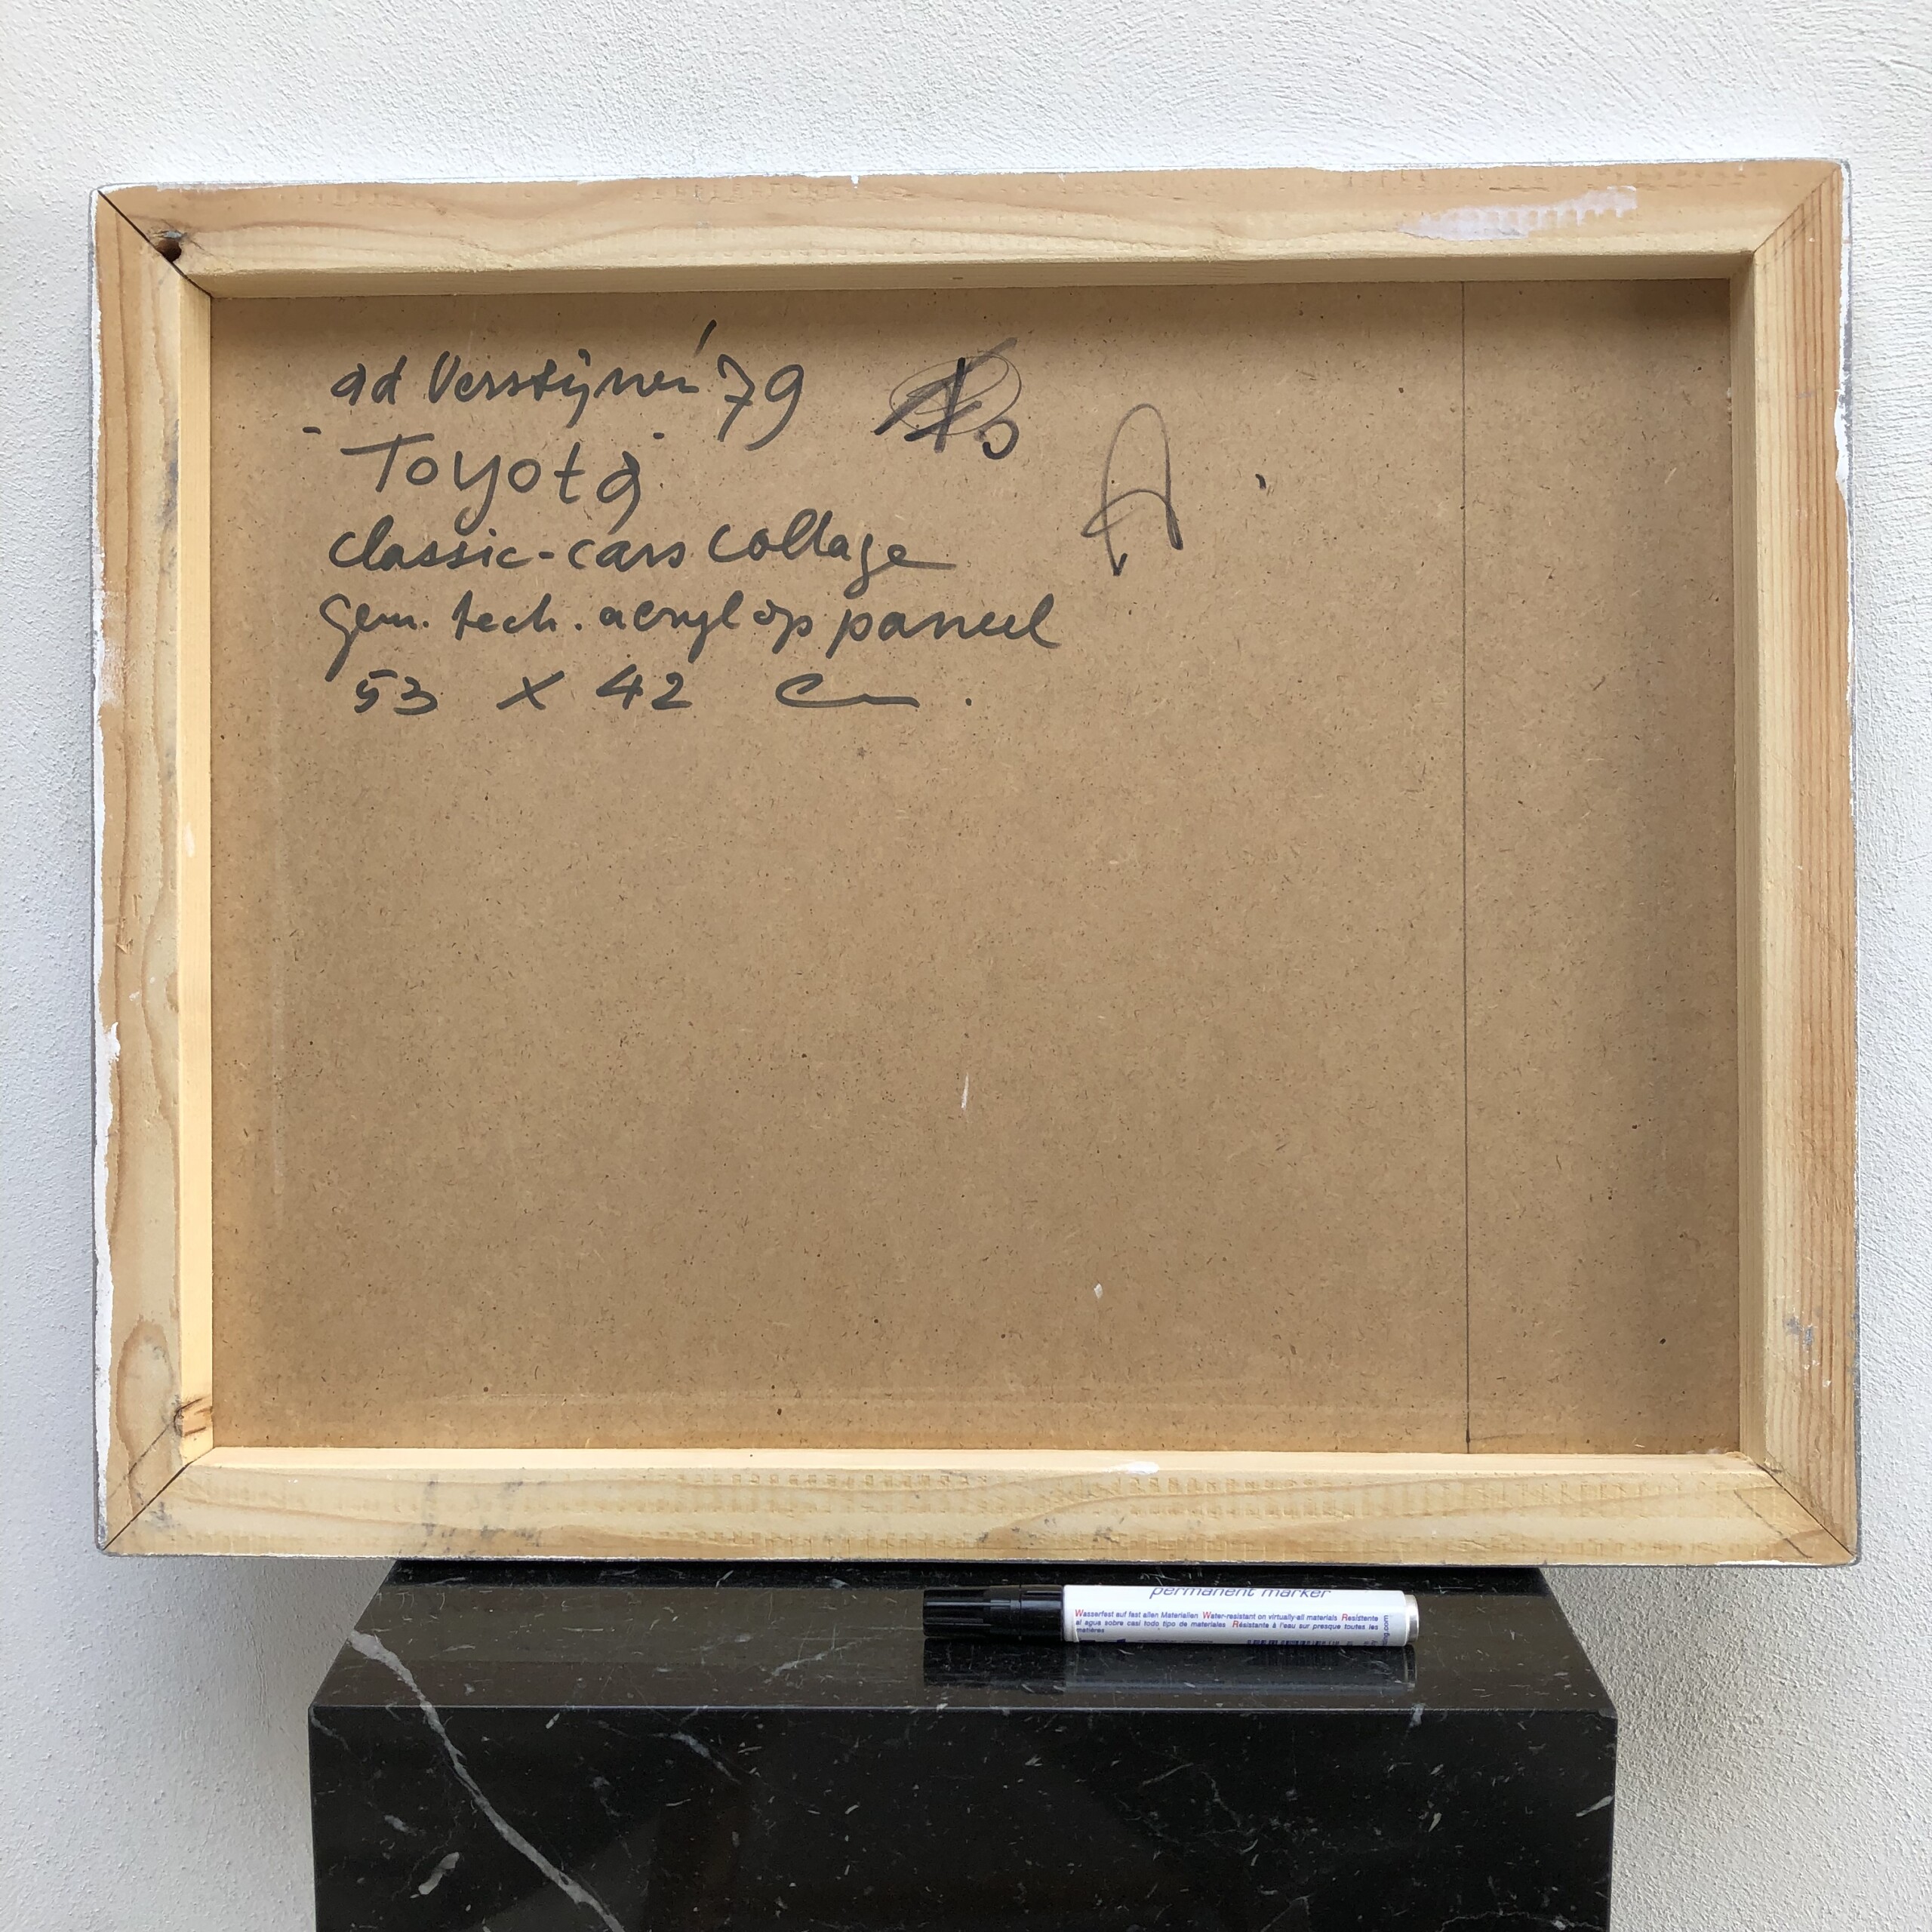 ad Verstijnen '79
"Toyota"
classic-cars collage
gem. tech. acryl op paneel
53 x 42 cm.
A
permanent marker
Wasserfest auf fast allen Materialien Water-resistant on virtually all materials Resistente
al agua sobre casi todo tipo de materiales Résistante à l'eau sur presque toutes les
matières